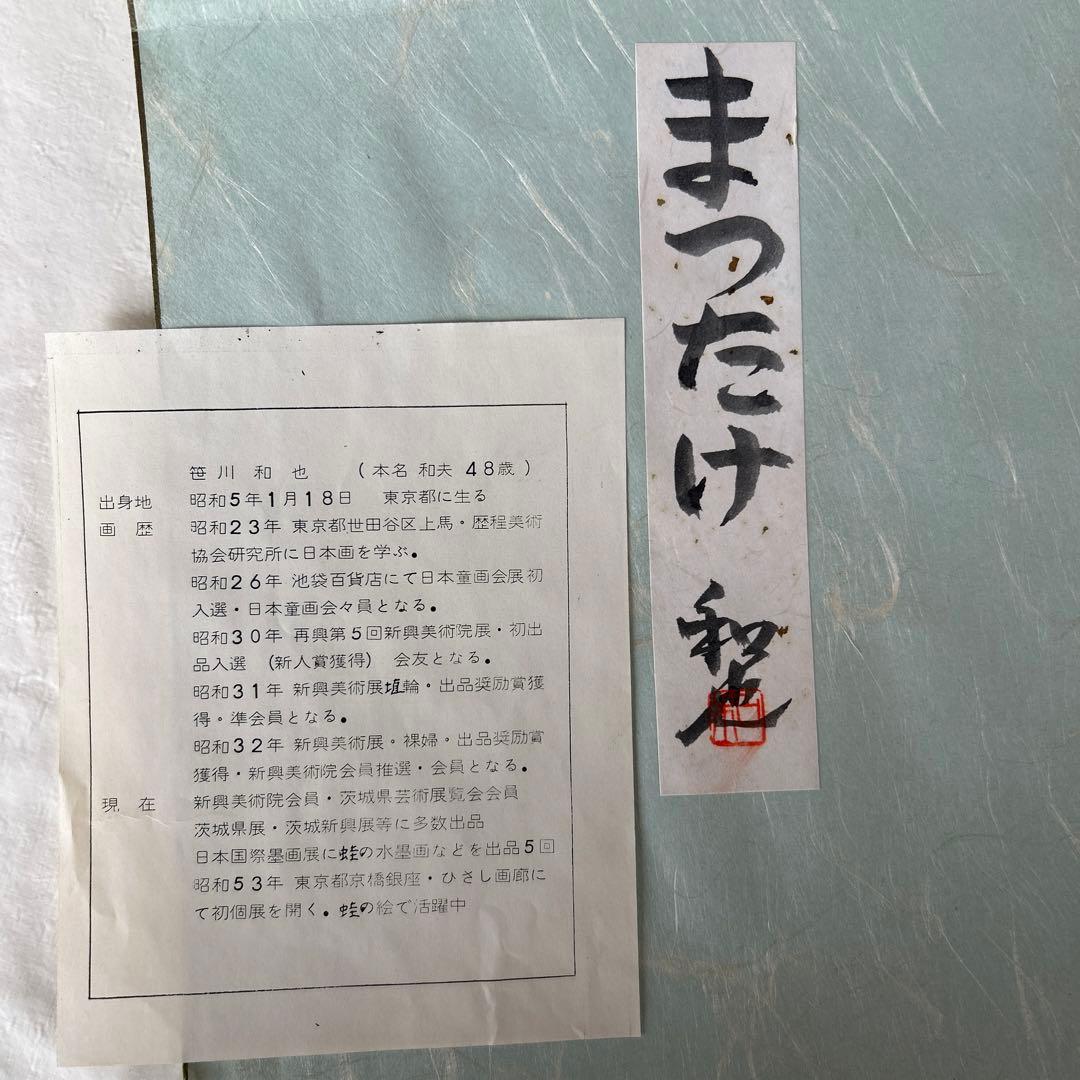 まつたけ 和也
笹川和也 (本名 和夫 48歳)
出身地 昭和5年1月18日 東京都に生る
画歴 昭和23年 東京都世田谷区上馬・歴程美術
協会研究所に日本画を学ぶ。
昭和26年 池袋百貨店にて日本童画会展初
入選・日本童画会々員となる。
昭和30年 再興第5回新興美術院展・初出
品入選 (新人賞獲得) 会友となる。
昭和31年 新興美術展埴輪・出品奨励賞獲
得・準会員となる。
昭和32年 新興美術展・裸婦・出品奨励賞
獲得・新興美術院会員推選・会員となる。
現在 新興美術院会員・茨城県芸術展覧会会員
茨城県展・茨城新興展等に多数出品
日本国祭墨画展に蛙の水墨画などを出品5回
昭和53年 東京都京橋銀座・ひさし画廊に
て初個展を開く。蛙の絵で活躍中